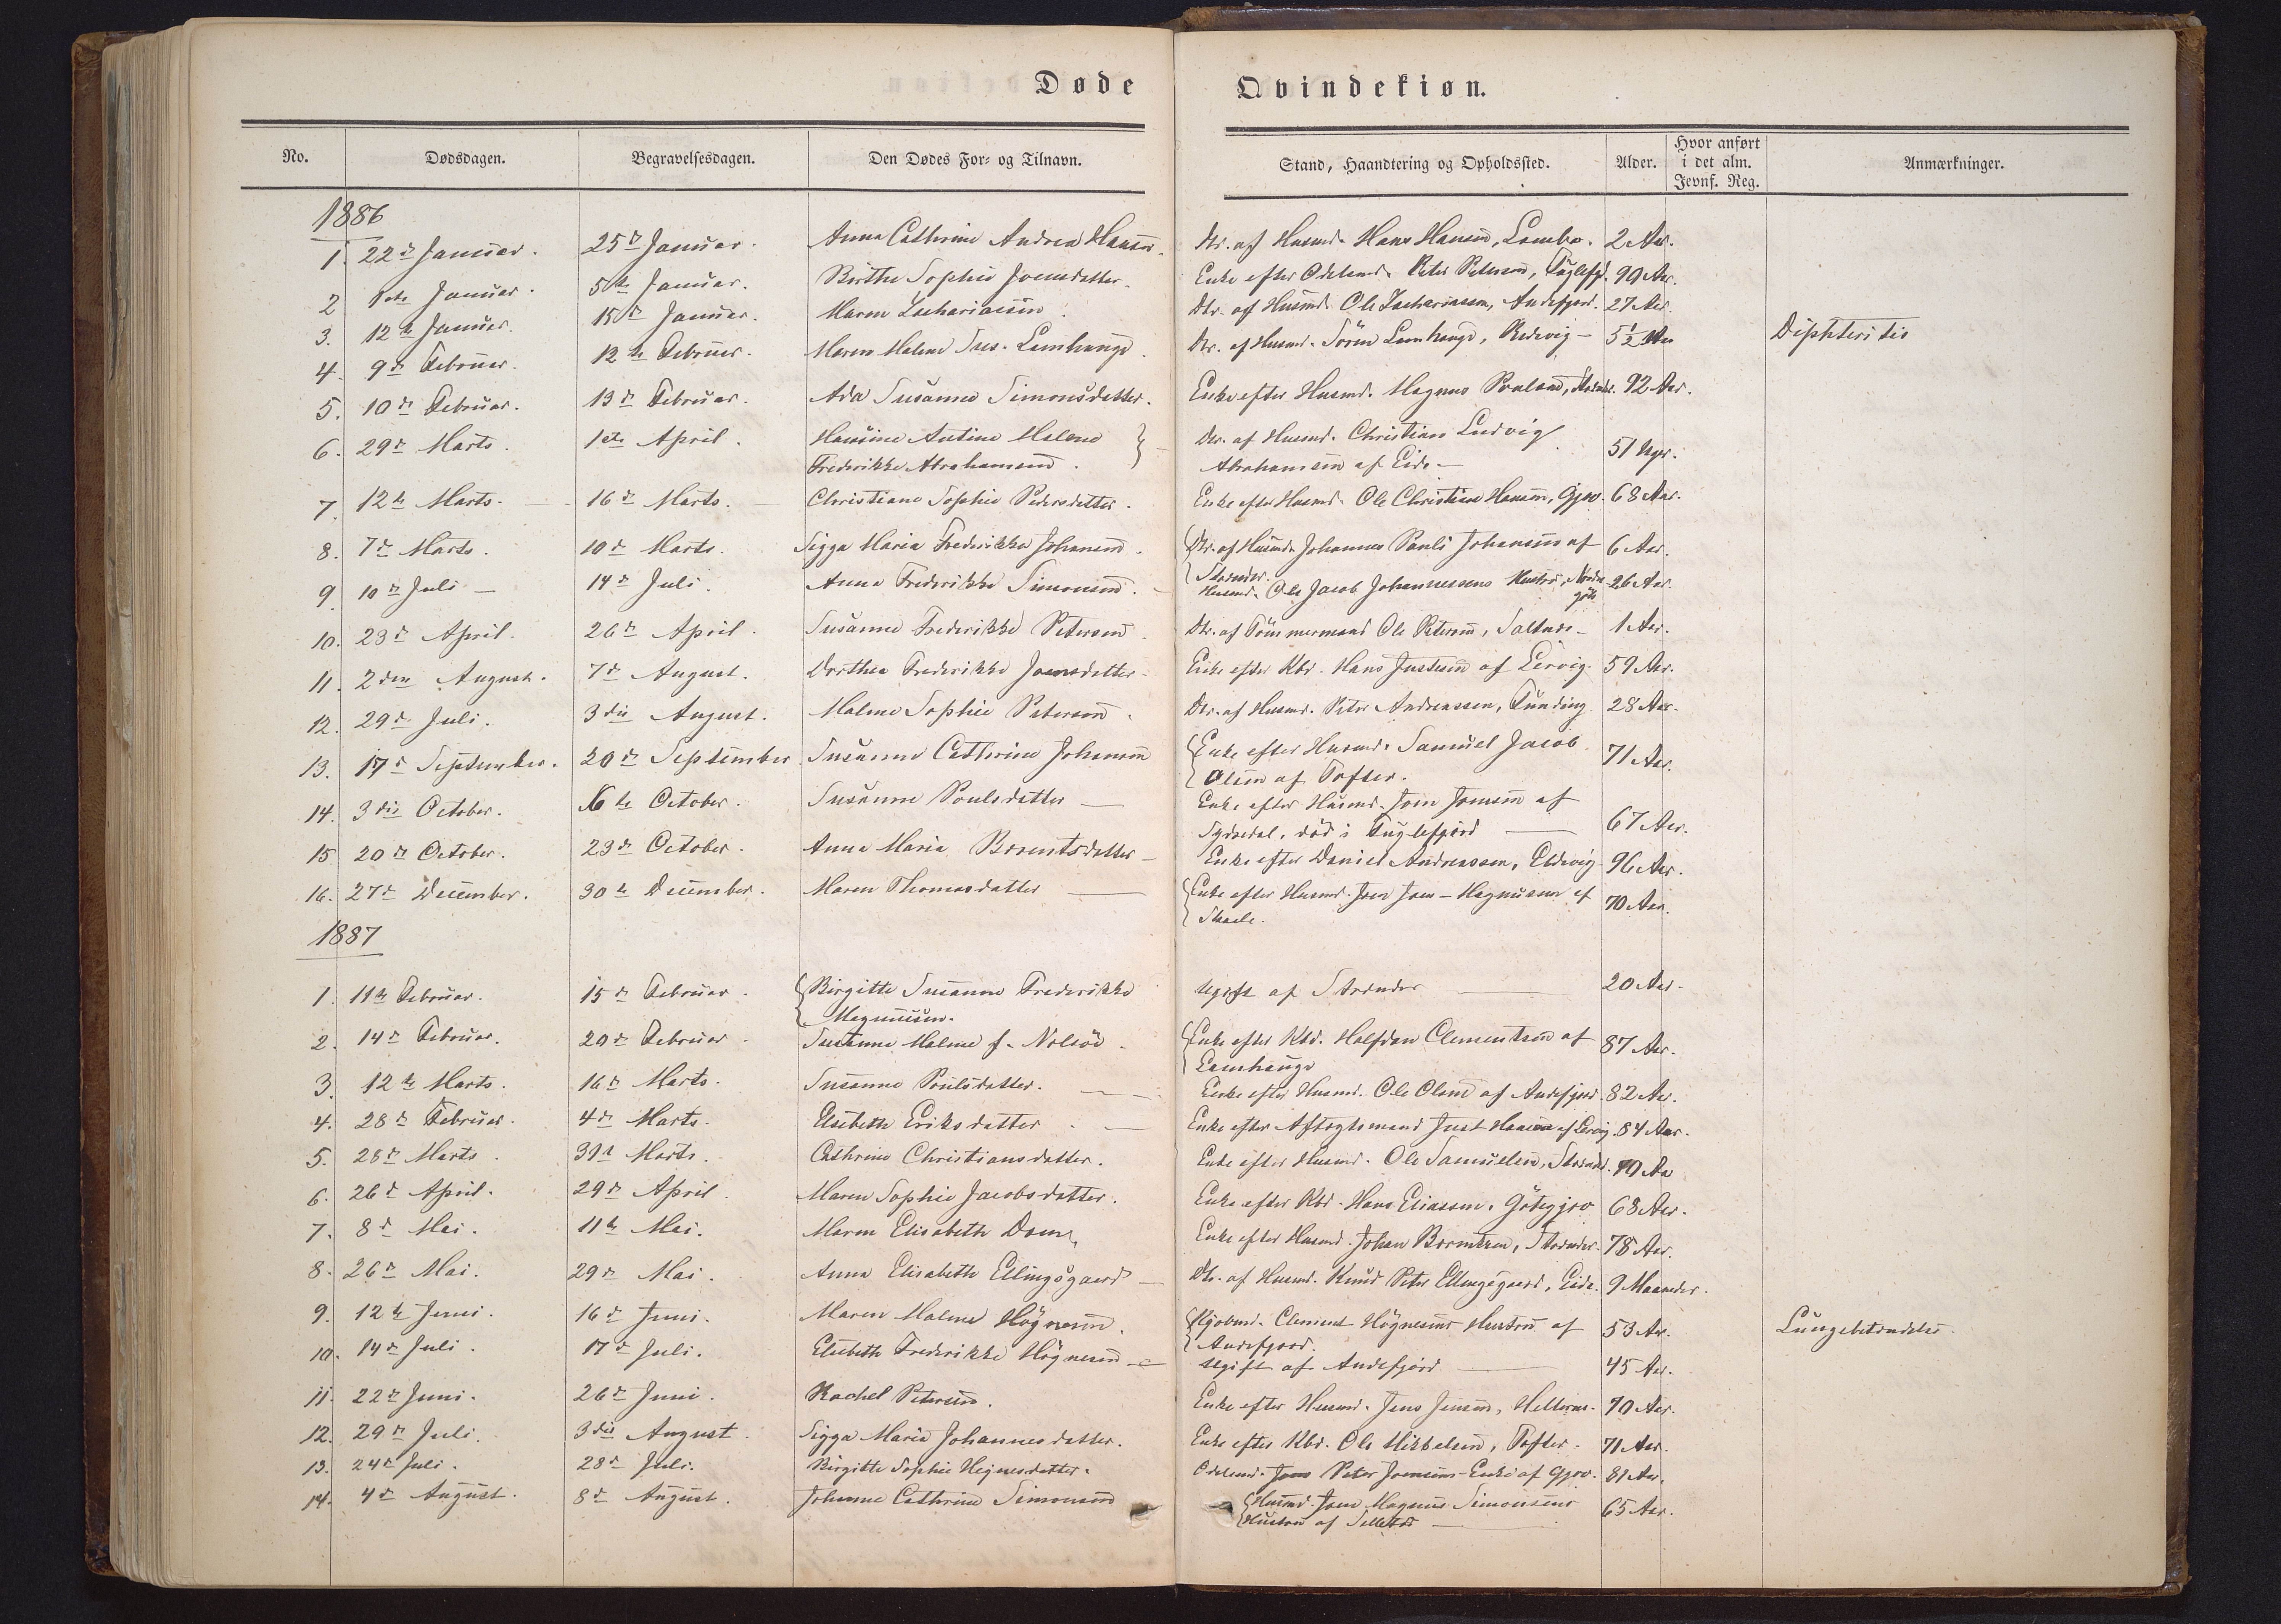 Døde Qvindekiøn.
No. Dødsdagen. Begravelsesdagen. Den Dødes For- og Tilnavn. Stand, Haandtering og Opholdssted. Alder. Hvor anført i det alm. Jevnf. Reg. Anmærkninger.
1886
1. 22de Januar. 25de Januar. Anna Cathrine Andrea Hansen. Dtr. af Husmd. Hans Hansen, Lambo. 2 Aar.
2 1ste Januar. 5te Januar. Birthe Sophie Joensdatter. Enke efter Odelsmd. Peter Petersen, Fuglefj. 90 Aar.
3. 12te Januar. 15de Januar. Maren Zachariasen. Dtr. af Husmd. Ole Zachariasen, Andefjord. 27 Aar.
4. 9de Februar. 12te Februar. Maren Malene Lamhauge. Dtr. af Husmd. Sören Lamhauge, Redevig - 5½ Aar Diphteritis
5. 10de Februar. 13de Februar. Ada Susanne Simonsdatter. Enke efter Husmd. Magnus Poulsen, 92 Aar.
6. 29de Marts. 1ste April. Hansine Antine Malene Dtr. af Husmd. Christian Ludvig
Frederikke Abrahamsen. Abrahamsen af Eide - 51 Uger.
7. 12te Marts. 16de Marts. Christiane Sophie Pedersdatter. Enke efter Husmd. Ole Christian Hansen, Gjov. 68 Aar.
8. 7de Marts. 10de Marts. Sigga Maria Frederikke Johansen. Dtr. af Husmd. Johannes Pauli Johansen af 6 Aar.
Strender.
9. 10de Juli - 14de Juli. Anna Frederikke Simonsen. Husmd. Ole Jacob Johannessens Hustru, Nordre 26 Aar.
göte
10. 23de April. 26de April. Susanne Frederikke Petersen Dtr. af Tömmermand Ole Petersen, Saltnes - 1 Aar.
11. 2den August. 7de August. Dorthea Frederikke Joensdatter Enke efter Kbd. Hans Justesen af Lervig. 59 Aar.
12. 29de Juli. 3die August. Malene Sophie Petersen. Dtr. af Husmd. Peter Andreassen, Funding. 28 Aar.
13. 17de September. 20de September Susanne Cathrine Johansen Enke efter Husmd. Samuel Jacob 71 Aar.
Olsen af Tofter.
14. 3die October. 6te October. Susanne Poulsdatter Enke efter Husmd. Join Joensen af
Sydredal, död i Fuglefjord 67 Aar.
15 20de October. 23de October. Anna Maria Berentsdatter Enke efter Daniel Andreassen, Eldevig 96 Aar.
16. 27de December. 30te December. Maren Thomasdatter Enke efter Husmd. Joen Joen-Magnussen af 70 Aar.
Skaale.
1887
1. 11te Februar. 15de Februar. Birgitte Susanne Frederikke Ugift af Strender 20 Aar.
Magnussen.
2. 14de Februar. 20de Februar Susanne Malene f. Nolsöe. Enke efter Kbd. Halfdan Clementsen af 87 Aar.
Lamhauge
3. 12te Marts. 16de Marts. Susanne Poulsdatter. Enke efter Husmd. Ole Olsen af Andefjord. 82 Aar.
4. 28de Februar. 4de Marts. Elsebeth Eriksdatter. Enke efter Aftægtsmand Just Hansen af Lervig. 84 Aar.
5. 28de Marts. 31te Marts. Cathrine Christiansdatter. Enke efter Husmd. Ole Samuelsen, Strender. 70 Aar
6. 26de April. 29de April. Maren Sophie Jacobsdatter. Enke efter Kbd. Hans Eliassen, Götegjov 68 Aar.
7. 8de Mai. 11te Mai. Maren Elisabeth Dam Enke efter Husmd. Johan Berentsen, Strender. 78 Aar.
8. 26de Mai. 29de Mai. Anna Elisabeth Ellingsgaard Dtr. af Husmd. Knud Peter Ellingsgaard, Eide. 9 Maaneder.
9. 12te Juni. 16de Juni. Maren Malene Högnesen. Kjöbmd. Clement Högnesens Hustru af 53 Aar. Lungebetændelse.
Andefjord.
10. 14de Juli. 17de Juli. Elsebeth Frederikke Högnesen Ugift af Andefjord 45 Aar.
11. 22de Juni. 26de Juni. Rachel Petersen. Enke efter Husmd. Jens Jensen, Hellerne. 70 Aar.
12. 29de Juli. 3die August. Sigga Maria Johannesdatter. Enke efter Kbd. Ole Mikkelsen, Tofter. 71 Aar.
13. 24de Juli. 28de Juli. Birgitte Sophie Hognesdatter. Odelsmd. Jens Peter Joensens Enke af Gjov. 81 Aar.
14. 4de August. 8de August. Johanne Cathrine Simonsen Husmd. Joen Magnus Simonsens 65 Aar.
Hustru af Selletræ